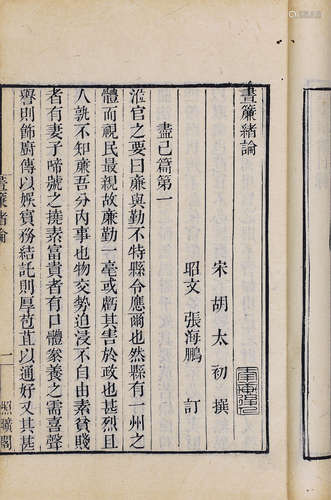 晝簾緒論
宋 胡太初 撰
昭文 張海鵬 訂
盡己篇第一
涖官之要曰廉與勤不特縣令應爾也然縣有一州之
體而視民最親故廉勤一毫或虧其害於政也甚烈且
人孰不知廉吾分內事也物交勢迫浸不自由素貧賤
者有妻子啼號之撓素富貴者有口體豢養之需喜聲
譽則飾廚傳以娛賓務結託則厚苞苴以通好又其甚
晝簾緒論
一
照曠閣